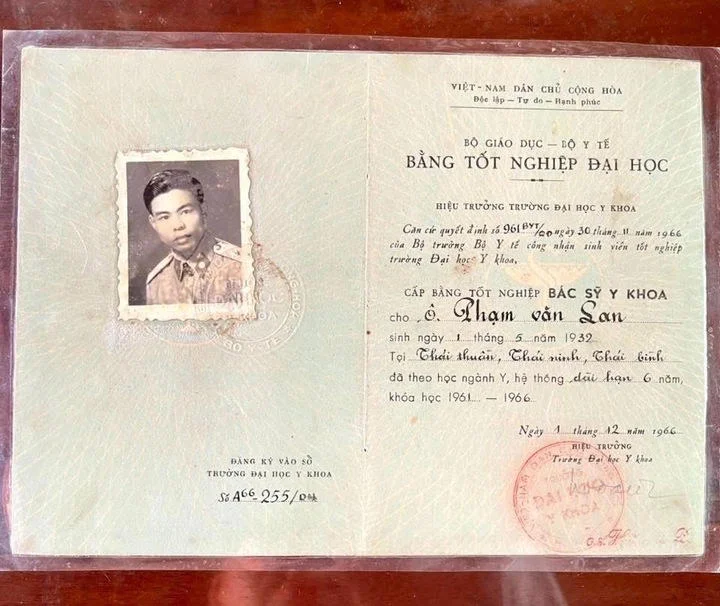 ĐĂNG KÝ VÀO SỔ
TRƯỜNG ĐẠI HỌC Y KHOA
Số A66-255/ĐH
VIỆT-NAM DÂN CHỦ CỘNG HÒA
Độc lập — Tự do — Hạnh phúc
BỘ GIÁO DỤC — BỘ Y TẾ
BẰNG TỐT NGHIỆP ĐẠI HỌC
HIỆU TRƯỞNG TRƯỜNG ĐẠI HỌC Y KHOA
Căn cứ quyết định số 961 BYT/QĐ ngày 30 tháng 11 năm 1966
của Bộ trưởng Bộ Y tế công nhận sinh viên tốt nghiệp
trường Đại học Y khoa.
CẤP BẰNG TỐT NGHIỆP BÁC SỸ Y KHOA
cho Ô. Phạm văn Lan
sinh ngày 1 tháng 5 năm 1932
Tại Thái thuần, Thái ninh, Thái bình
đã theo học ngành Y, hệ thống dài hạn 6 năm,
khóa học 1961 — 1966
Ngày 1 tháng 12 năm 1966
HIỆU TRƯỞNG
Trường Đại học Y khoa
ĐẠI HỌC
Y KHOA